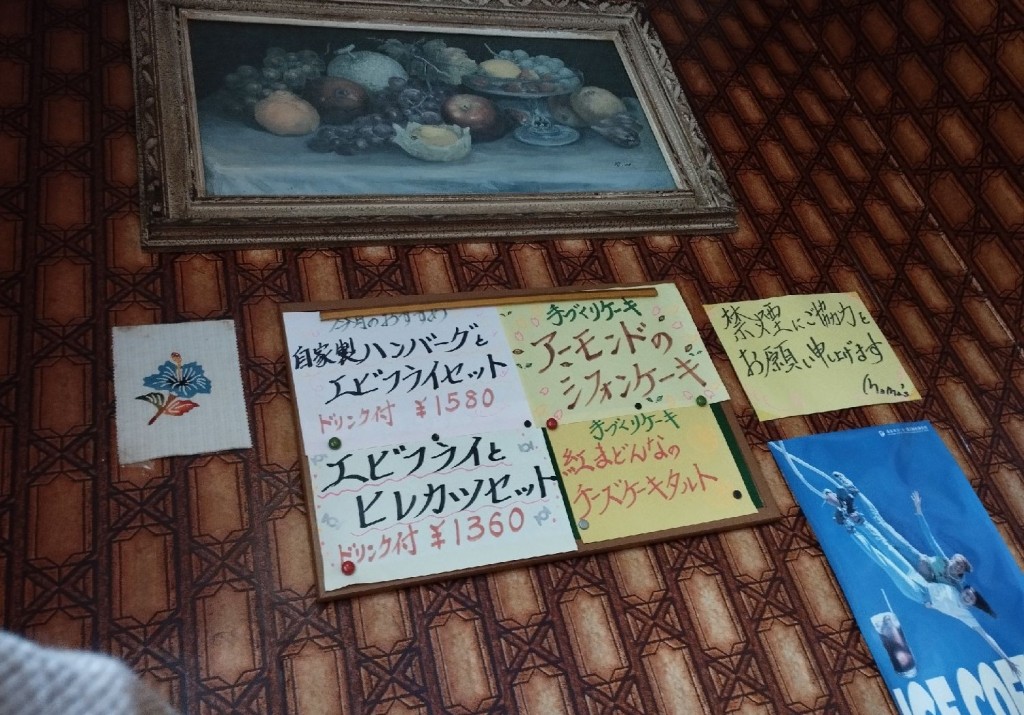 今月のおすすめ
自家製ハンバーグと
エビフライセット
ドリンク付 ¥1580
エビフライと
ヒレカツセット
ドリンク付 ¥1360
手づくりケーキ
アーモンドの
シフォンケーキ
手づくりケーキ
紅まどんなの
チーズケーキタルト
禁煙にご協力を
お願い申し上げます
Mama's
ICE COF